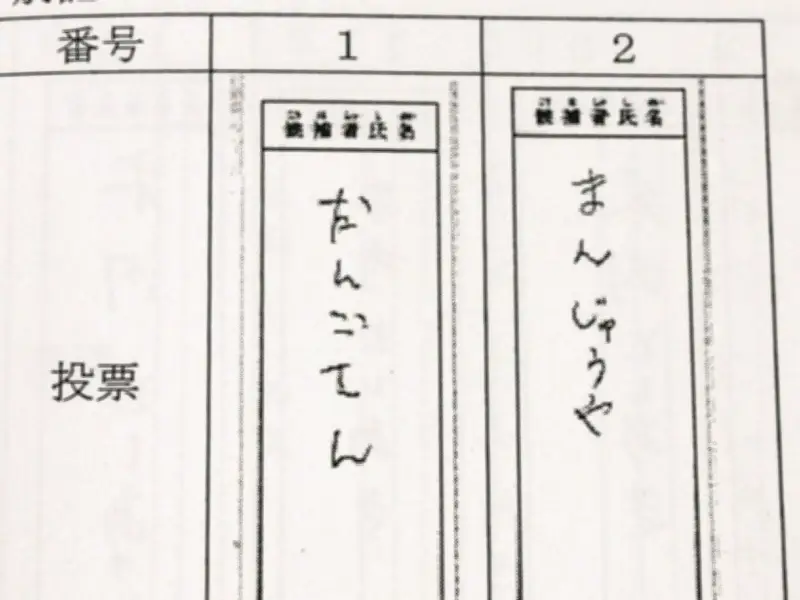 番号 1 2
候補者氏名
候補者氏名
まんじゅうや
投票